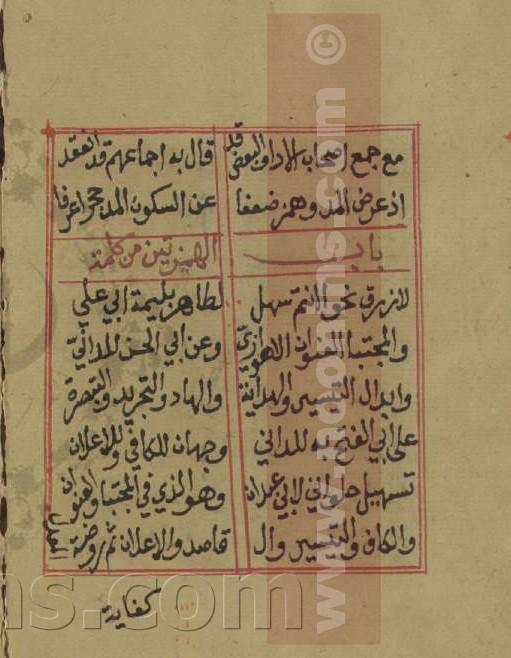 مع جمع اصحاب الادا والبعض قد قال به اجماعهم قد انعقد
اذ عرض المد وهمز ضعفا عن السكون المد حجر اعرفا
باب الهمزتين من كلمة
لازرق نحو اانتم سهل لطاهر بليمة ابي علي
والمجتبا العنوان الاهوازي وعن ابي الحسن للداني
وابدال التيسير والهداية والهاد والتجريد والتبصرة
على ابي الفتح به للداني وجهان للكافي وللاعلان
تسهيل حلواني لابي عمران وهو الذي في المجتبا والعنوان
والكاف والتيسير وال قاصد والاعلان ثم روضة
كفاية
www.taomins.com ©
ns.com